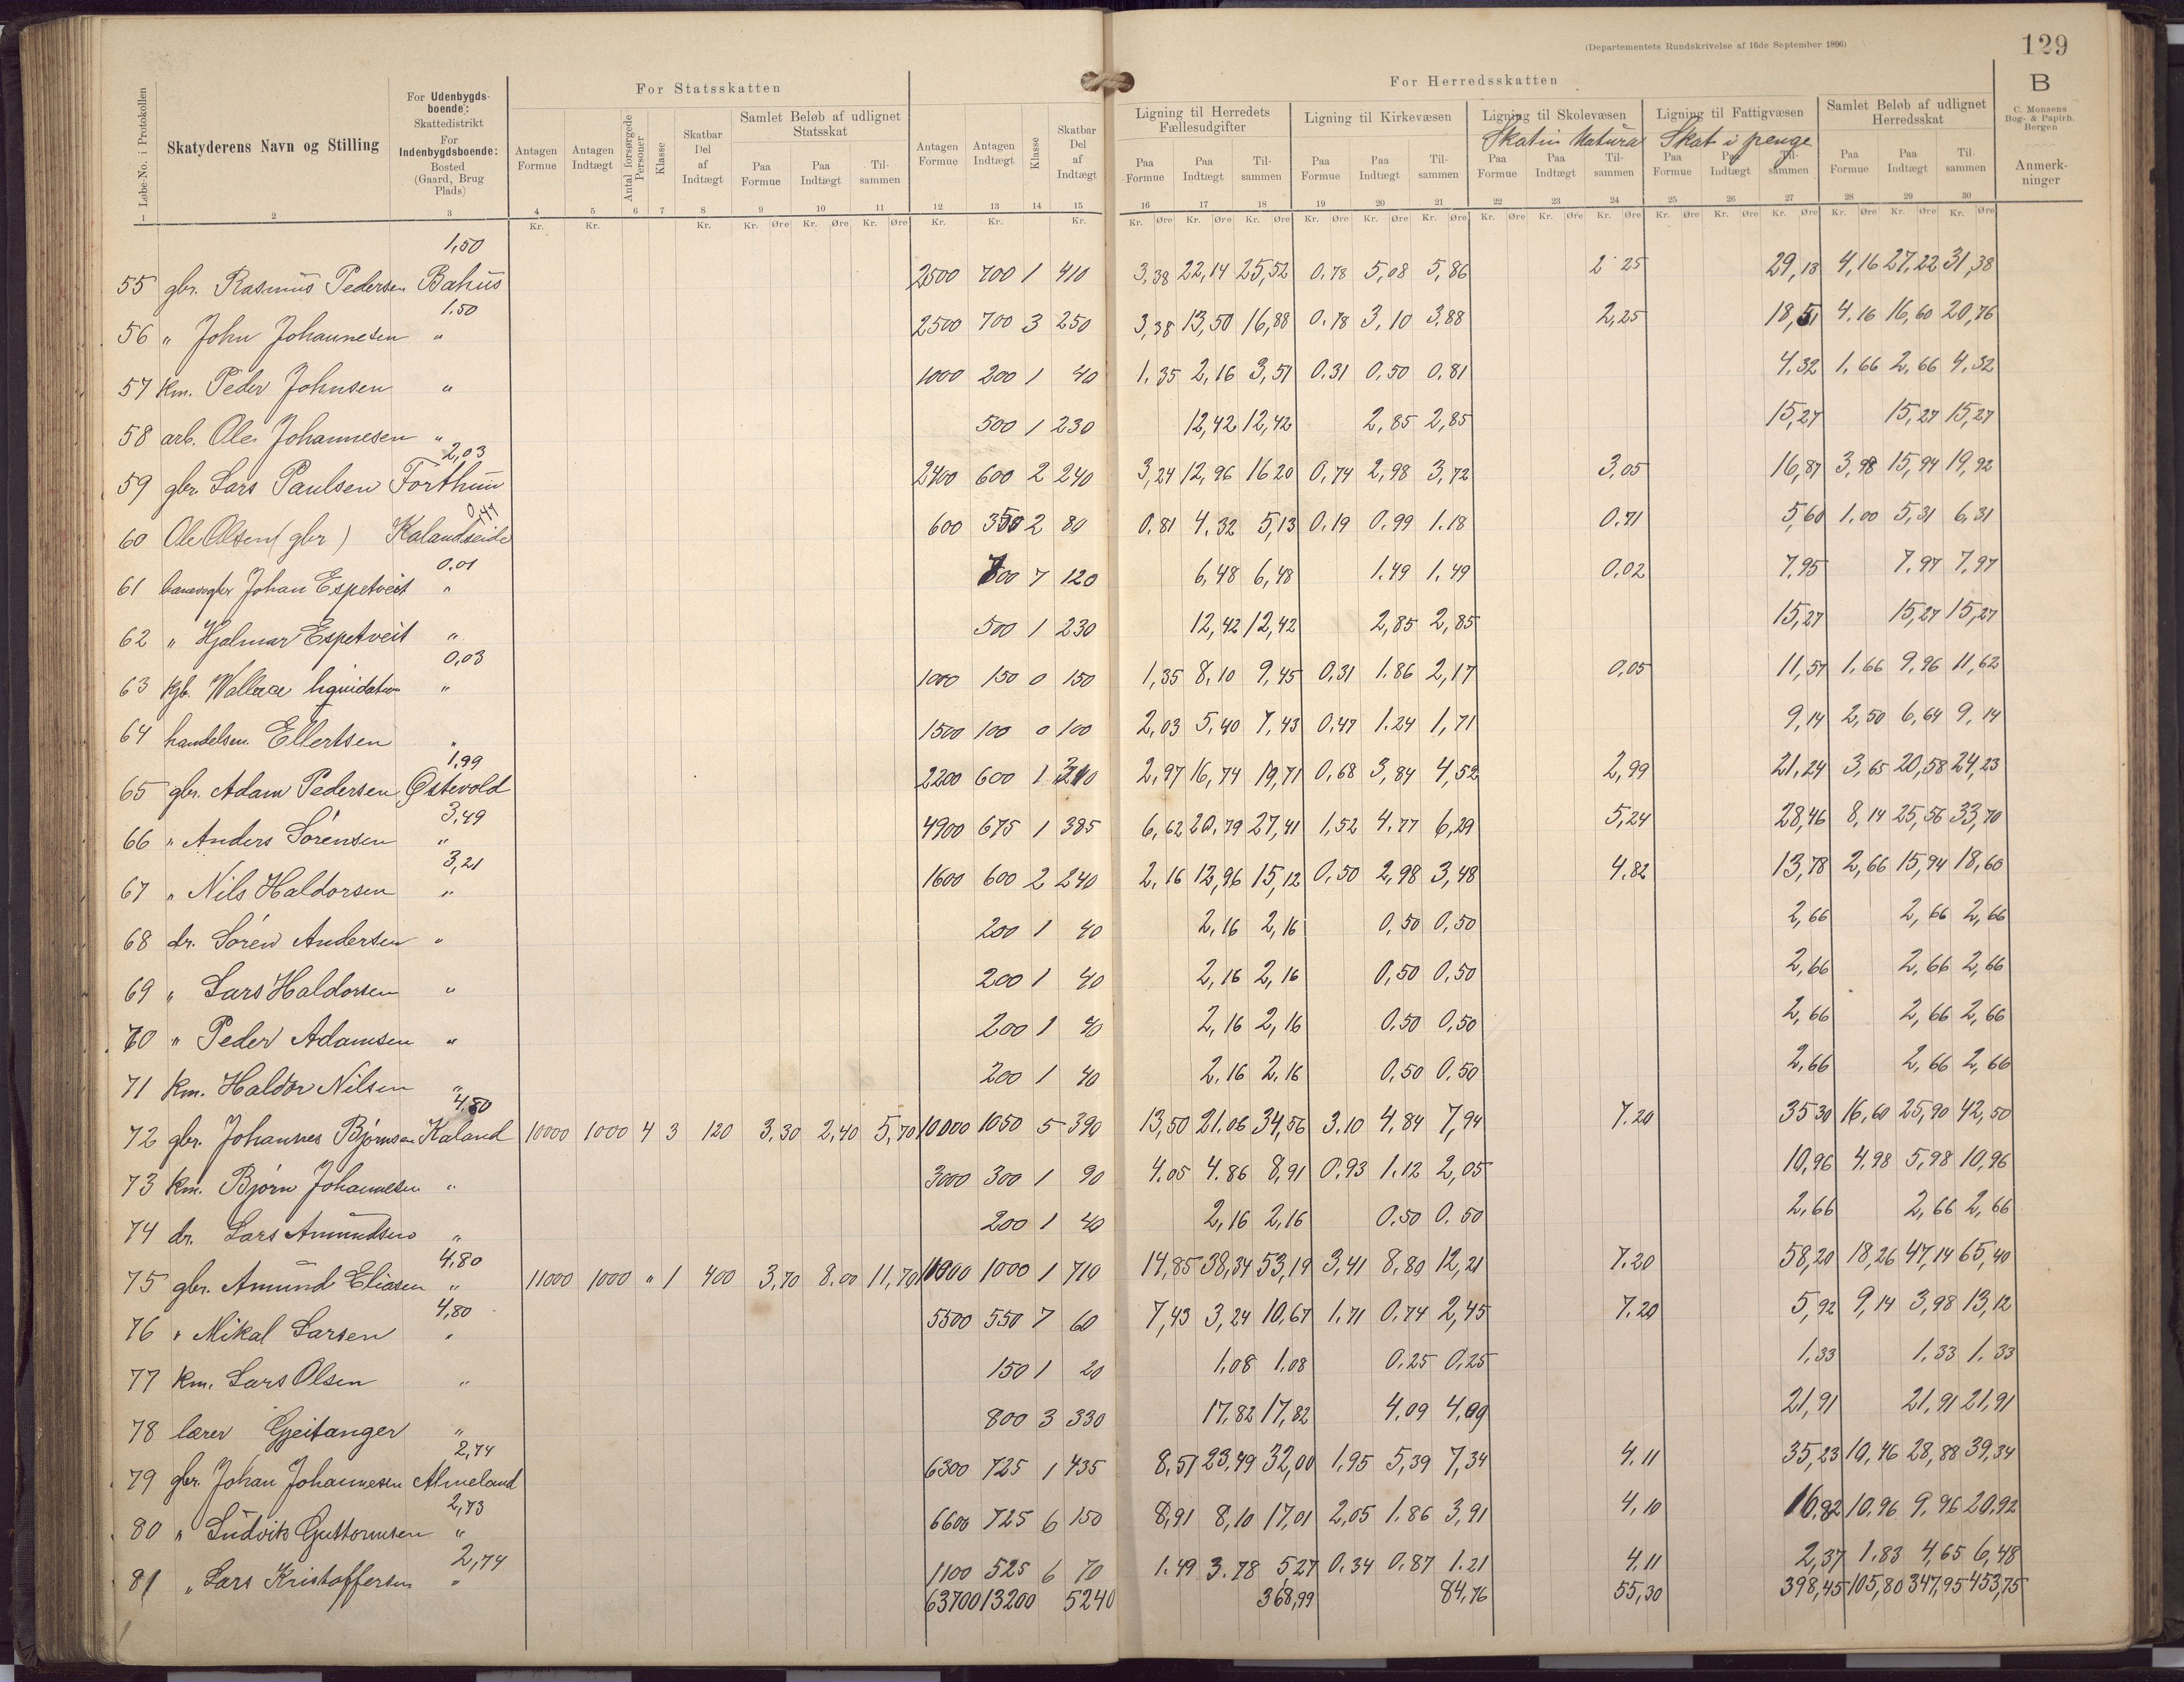 (Departementets Rundskrivelse af 16de September 1896)
129
B
C. Monsens Bog- & Papirh. Bergen
For Statsskatten
For Herredsskatten
Løbe-No. i Protokollen
Skatyderens Navn og Stilling
For Udenbygdsboende: Skattedistrikt For Indenbygdsboende: Bosted (Gaard, Brug Plads)
Antagen Formue
Antagen Indtægt
Antal forsørgede Personer
Klasse
Skatbar Del af Indtægt
Samlet Beløb af udlignet Statsskat
Paa Formue
Paa Indtægt
Tilsammen
Antagen Formue
Antagen Indtægt
Klasse
Skatbar Del af Indtægt
Ligning til Herredets Fællesudgifter
Paa Formue Paa Indtægt Tilsammen
Ligning til Kirkevæsen
Paa Formue Paa Indtægt Tilsammen
Ligning til Skolevæsen
Skat in Natura
Paa Formue Paa Indtægt Tilsammen
Ligning til Fattigvæsen
Skat i penge
Paa Formue Paa Indtægt Tilsammen
Samlet Beløb af udlignet Herredsskat
Paa Formue Paa Indtægt Tilsammen
Anmerkninger
1 2 3 4 5 6 7 8 9 10 11 12 13 14 15 16 17 18 19 20 21 22 23 24 25 26 27 28 29 30
Kr. Kr. Kr. Kr. Øre Kr. Øre Kr. Øre Kr. Kr. Kr. Kr. Øre Kr. Øre Kr. Øre Kr. Øre Kr. Øre Kr. Øre Kr. Øre Kr. Øre Kr. Øre Kr. Øre Kr. Øre Kr. Øre Kr. Øre Kr. Øre Kr. Øre
1,50
55 gbr. Rasmus Pedersen Bahus 2500 700 1 410 3,38 22,14 25,52 0.78 5,08 5,86 2 25 29,13 4,16 27,22 31,38
1.50
56 " John Johannesen " 2500 700 3 250 3,38 13,50 16,88 0.78 3,10 3,88 2,25 18,51 4.16 16,60 20,76
57 km. Peder Johnsen " 1000 200 1 40 1.35 2,16 3,51 0.31 0,50 0,81 4.32 1.66 2,66 4.32
58 arb. Ole Johannesen " 500 1 230 12,42 12,42 2,85 2,85 15,27 15,27 15,27
2,03
59 gbr. Lars Paulsen Forthun 2400 600 2 240 3,24 12,96 16 20 0,74 2,98 3,72 3,05 16,87 3,98 15,94 19,92
0,47
60 Ole Olsen (gbr) Kalandseide 600 350 2 80 0,81 4.32 5,13 0.19 0.99 1.18 0.71 5,60 1.00 5,31 6.31
0.01
61 banevogter Johan Espetveit " 700 7 120 6,48 6,48 1.49 1.49 0,02 7.95 7.97 7,97
62 " Hjalmar Espetveit " 500 1 230 12,42 12,42 2,85 2,85 15,27 15,27 15,27
0,03
63 kjb. Wallace liquidation " 1000 150 0 150 1,35 8,10 9,45 0,31 1.86 2,17 0,05 11,57 1,66 9,96 11,62
64 handelsm. Ellertsen " 1500 100 0 100 2,03 5,40 7,43 0,47 1.24 1,71 9,14 2,50 6,64 9,14
1,99
65 gbr. Adam Pedersen Østevold 2200 600 1 310 2,97 16,74 19,71 0,68 3,84 4,52 2,99 21,24 3,65 20,58 24,23
3,49
66 " Anders Sørensen " 4900 675 1 385 6,62 20,79 27,41 1,52 4.77 6,29 5,24 28,46 8,14 25,56 33,70
3,21
67 " Nils Haldorsen " 1600 600 2 240 2,16 12,96 15,12 0,50 2,98 3,48 4.82 13,78 2,66 15,94 18,60
68 dr. Søren Andersen " 200 1 40 2,16 2,16 0,50 0,50 2,66 2,66 2,66
69 " Lars Haldorsen " 200 1 40 2,16 2,16 0,50 0,50 2,66 2,66 2,66
70 " Peder Adamsen " 200 1 40 2,16 2,16 0,50 0,50 2,66 2,66 2,66
71 km. Haldor Nilsen " 200 1 40 2,16 2,16 0,50 0,50 2,66 2,66 2,66
4,80
72 gbr. Johannes Bjørnsen Kaland 10000 1000 4 3 120 3,30 2,40 5,70 10000 1050 5 390 13,50 21.06 34,56 3.10 4.84 7,94 7.20 35 30 16,60 25,90 42,50
73 km. Bjørn Johannesen " 3000 300 1 90 4.05 4.86 8,91 0,93 1.12 2,05 10,96 4.98 5,98 10,96
74 dr. Lars Amundsen " 200 1 40 2,16 2,16 0,50 0,50 2,66 2,66 2,66
4,80
75 gbr. Amund Eliasen " 11000 1000 " 1 400 3,70 8.00 11,70 11000 1000 1 710 14,85 38,34 53,19 3,41 8.80 12,21 7.20 58,20 18,26 47,14 65,40
4,80
76 " Mikal Larsen " 5500 550 7 60 7,43 3,24 10,67 1.71 0.74 2,45 7.20 5,92 9,14 3,98 13,12
77 km. Lars Olsen " 150 1 20 1,08 1,08 0.25 0,25 1,33 1.33 1.33
78 lærer Gjeitanger " 800 3 330 17,82 17,82 4.09 4,09 21,91 21,91 21,91
2,74
79 gbr. Johan Johannesen Almeland 6300 725 1 435 8,51 23,49 32,00 1,95 5,39 7,34 4.11 35,23 10,46 28,88 39,34
2,73
80 " Ludvik Guttormsen " 6600 725 6 150 8,91 8,10 17,01 2,05 1.86 3,91 4,10 16,82 10,96 9,96 20,92
2,74
81 " Lars Kristoffersen " 1100 525 6 70 1.49 3.78 5,27 0.34 0,87 1.21 4,11 2,37 1.83 4,65 6,48
63700 13200 5240 368,99 84,76 55,30 398,45 105,80 347,95 453,75